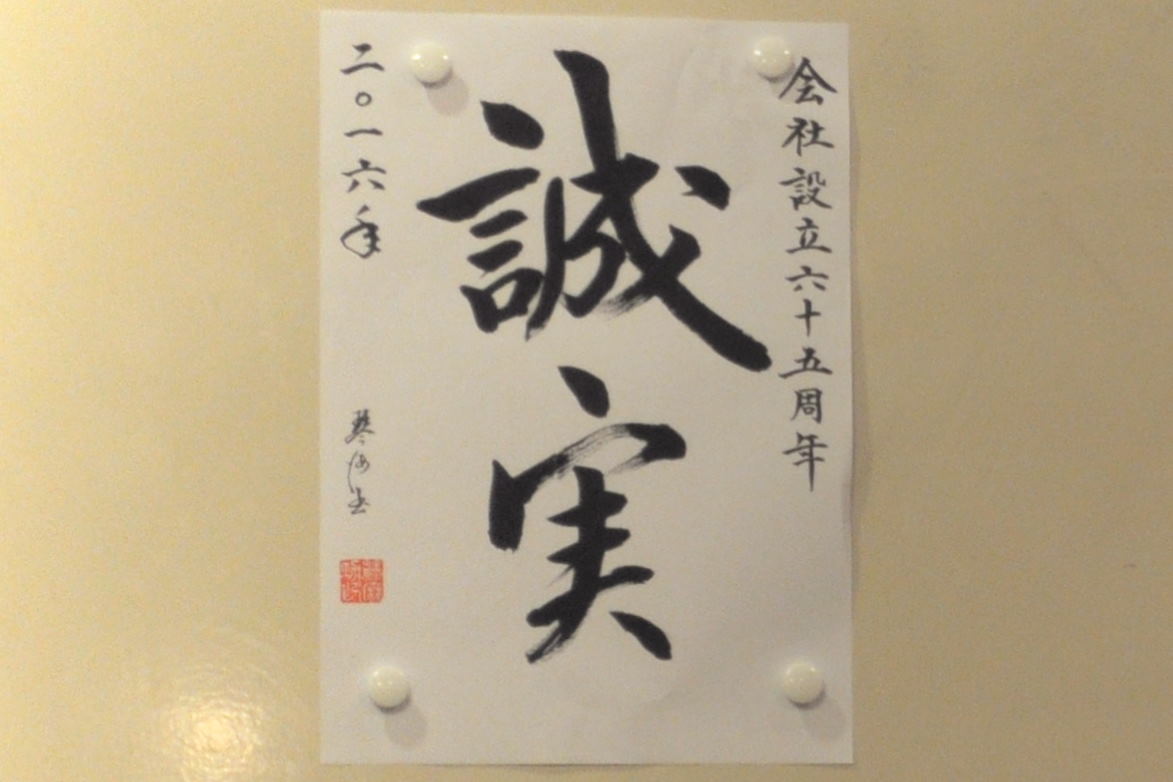 会社設立六十五周年
誠実
二〇一六年